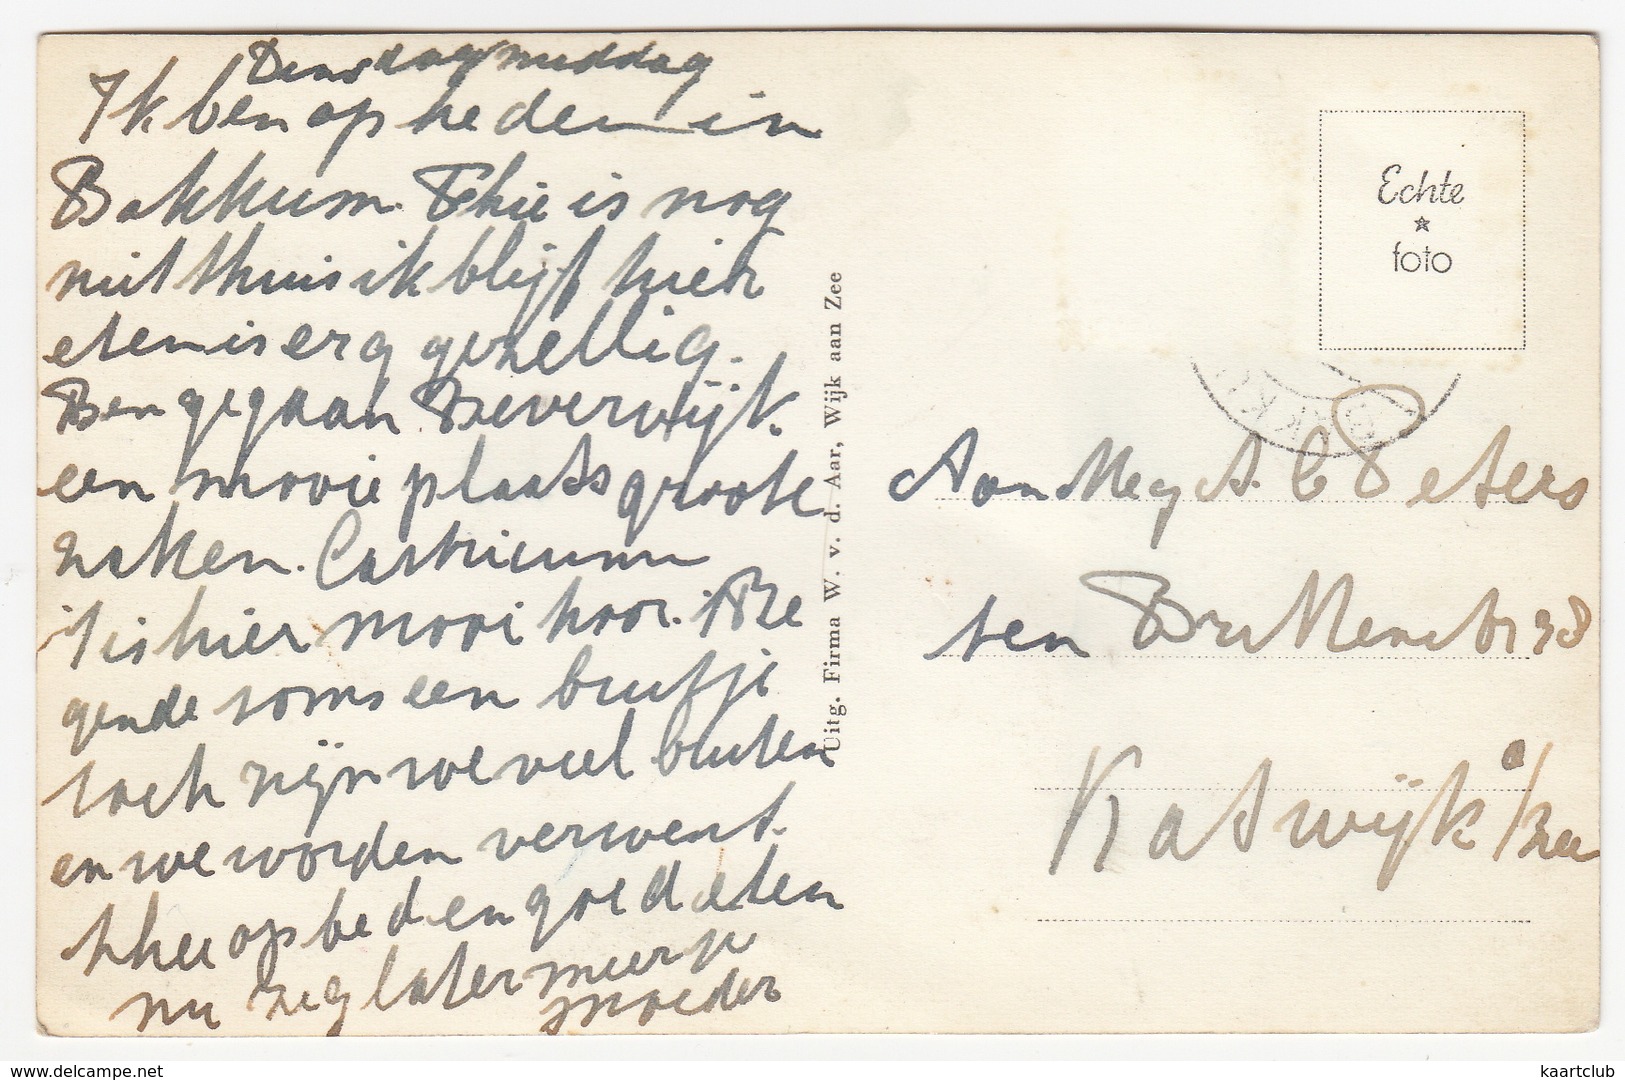 Dinsdagmiddag
Ik ben op heden in
Bakkum. Thie is nog
niet thuis ik blijf hier
eten is erg gezellig.
Ben gegaan Beverwijk.
een mooie plaats groote
zaken. Castricum
't is hier mooi hoor. Re
gende soms een buitje
toch zijn we veel buiten
en we worden verwent.
thee op bed en goed eten
nu zeg later meer je
moeder
Uitg. Firma W. v. d. Aar, Wijk aan Zee
Echte
foto
Aan Mej A. C Peters
ten Brittenstr 28
Katwijk a/zee
delcampe.net
kaartclub